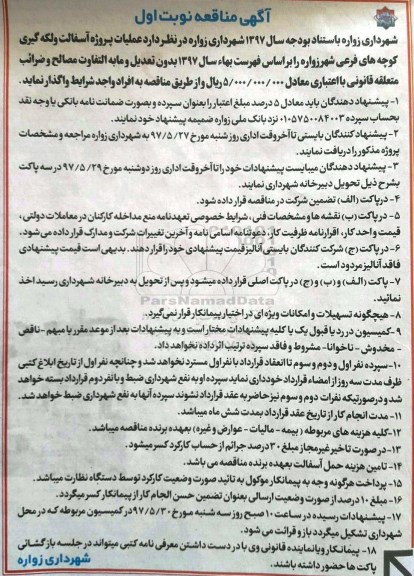 آگهی مناقعه نوبت اول
شهرداری زواره باستناد بودجه سال ۱۳۹۷ شهرداری زواره در نظر دارد عملیات پروژه آسفالت ولکه گیری
کوچه های فرعی شهر زواره را بر اساس فهرست بهاء سال ۱۳۹۷ بدون تعدیل و مابه التفاوت مصالح و ضرائب
متعلقه قانونی با اعتباری معادل ۵/۰۰۰/۰۰۰/۰۰۰ ریال و از طریق مناقصه به افراد واجد شرایط واگذار نماید.
۱- پیشنهاد دهندگان باید معادل ۵ درصد مبلغ اعتبار را بعنوان سپرده و بصورت ضمانت نامه بانکی یا وجه نقد
بحساب سپرده ۰۱۰۵۷۵۰۰۸۴۰۰۳ نزد بانک ملی زواره ضمیمه پیشنهاد خود نمایند.
۲- پیشنهاد کنندگان بایستی تا آخر وقت اداری روز شنبه مورخ ۹۷/۵/۲۷ به شهرداری زواره مراجعه و مشخصات
پروژه مذکور را دریافت نمایند.
۳- پیشنهاد دهندگان میبایست پیشنهادات خود را تا آخر وقت اداری روز دوشنبه مورخ ۹۷/۵/۲۹ در سه پاکت
بشرح ذیل تحویل دبیرخانه شهرداری نمایند.
۴- در پاکت (الف) تضمین شرکت در مناقصه قرار داده شود.
۵- در پاکت (ب) نقشه ها و مشخصات فنی، شرایط خصوصی تعهدنامه منع مداخله کارکنان در معاملات دولتی،
قیمت واحد کار، اقرارنامه ظرفیت کار، دعوتنامه اساسی نامه و آخرین تغییرات شرکت و مدارک قرار داده می شود.
۶- در پاکت (ج) شرکت کنندگان بایستی آنالیز قیمت پیشنهادی خود را قرار دهند. بدیهی است قیمت پیشنهادی
فاقد آنالیز مردود است.
۷- پاکت (الف) و (ب) و (ج) در پاکت اصلی قرار داده میشود و پس از تحویل به دبیرخانه شهرداری رسید اخذ
نمائید.
۸- هیچگونه تسهیلات و امکانات ویژه ای در اختیار پیمانکار قرار نمی گیرد.
۹- کمیسیون در رد یا قبول یک یا کلیه پیشنهادات مختار است و به پیشنهادات بعد از موعد مقرر یا مبهم - ناقص
- مخدوش - ناخوانا - مشروط و فاقد سپرده ترتیب اثر داده نخواهد داد.
۱۰- سپرده نفر اول و دوم و سوم تا انعقاد قرارداد با نفر اول مسترد نخواهد شد و چنانچه نفر اول از تاریخ ابلاغ کتبی
ظرف مدت سه روز از امضاء قرارداد خودداری نماید سپرده او به نفع شهرداری ضبط و با نفر دوم قرارداد بسته خواهد
شد و درصورتیکه نفرات دوم و سوم نیز حاضر به عقد قرارداد نشوند سپرده آنها به نفع شهرداری ضبط خواهد شد.
۱۱- مدت انجام کار از تاریخ عقد قرارداد بمدت شش ماه میباشد.
۱۲- کلیه هزینه های مربوطه (بیمه - مالیات - عوارض و غیره) بعهده برنده مناقصه میباشد.
۱۳- در صورت تاخیر غیرمجاز مبلغ ۳۰ درصد جرائم از حساب کارکرد کسر میشود.
۱۴- تامین هزینه حمل آسفالت بعهده برنده مناقصه می باشد.
۱۵- پرداخت هرگونه وجه به پیمانکار موکول به تائید صورت وضعیت کارکرد توسط دستگاه نظارت میباشد.
۱۶- مبلغ ۱۰ درصد از صورت وضعیت ارسالی بعنوان تضمین حسن انجام کار از پیمانکار کسر میگردد.
۱۷- پیشنهادات رسیده در ساعت ۱۰ صبح روز سه شنبه مورخ ۹۷/۵/۳۰ در کمیسیون مربوطه که در محل
شهرداری تشکیل میگردد باز و قرائت می شود.
۱۸- پیمانکار و یا نماینده قانونی وی با در دست داشتن معرفی نامه کتبی میتواند در جلسه بازگشائی
پاکت ها حضور داشته باشند.
شهرداری زواره
ParsNamadData